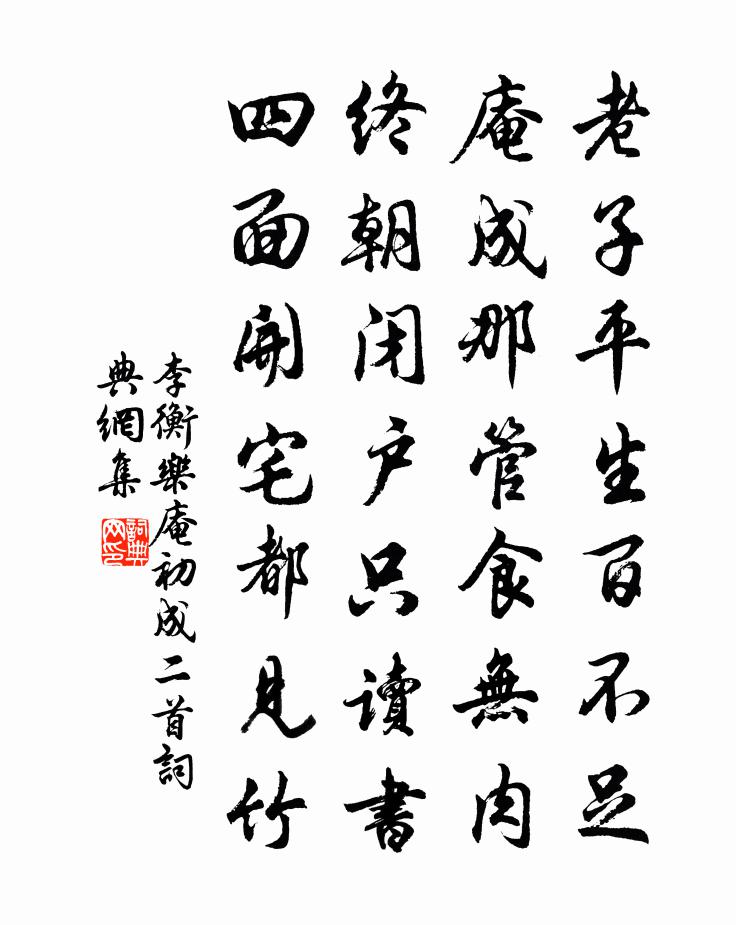 老子平生百不足
庵成那管食無肉
終朝閉户只讀書
四面開宅都見竹
李衡樂庵初成二首詞
典網集
詞典
网印